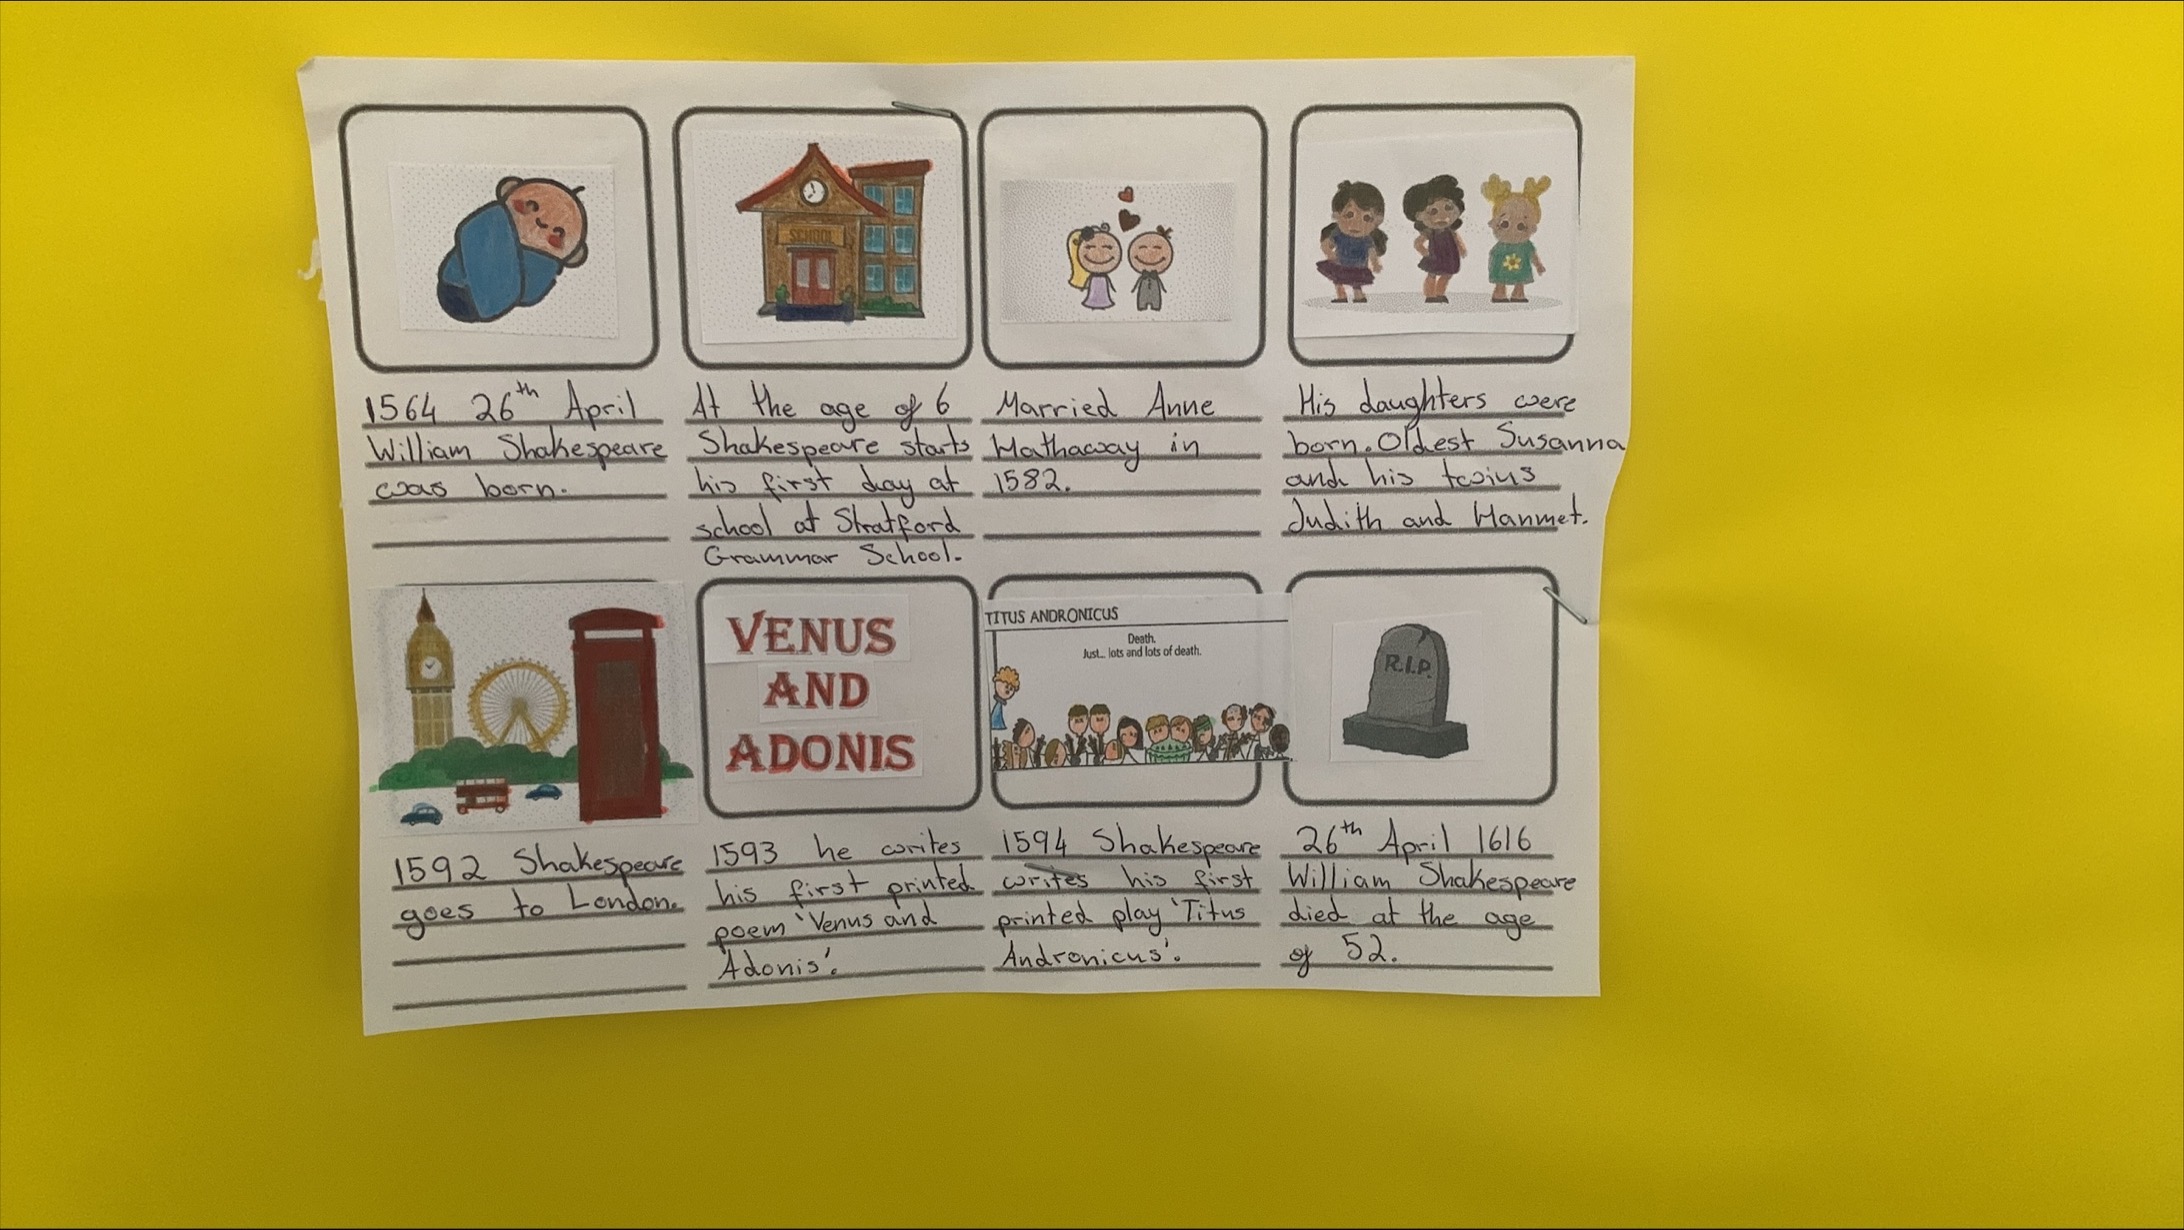 SCHOOL
1564 26th April
William Shakespeare
was born.
At the age of 6
Shakespeare starts
his first day at
school at Stratford
Grammar School.
Married Anne
Hathaway in
1582.
His daughters were
born. Oldest Susanna
and his twins
Judith and Hanmet.
1592 Shakespeare
goes to London.
VENUS
AND
ADONIS
1593 he writes
his first printed
poem 'Venus and
Adonis'.
TITUS ANDRONICUS
Death.
Just... lots and lots of death.
1594 Shakespeare
writes his first
printed play 'Titus
Andronicus'.
R.I.P.
26th April 1616
William Shakespeare
died at the age
of 52.